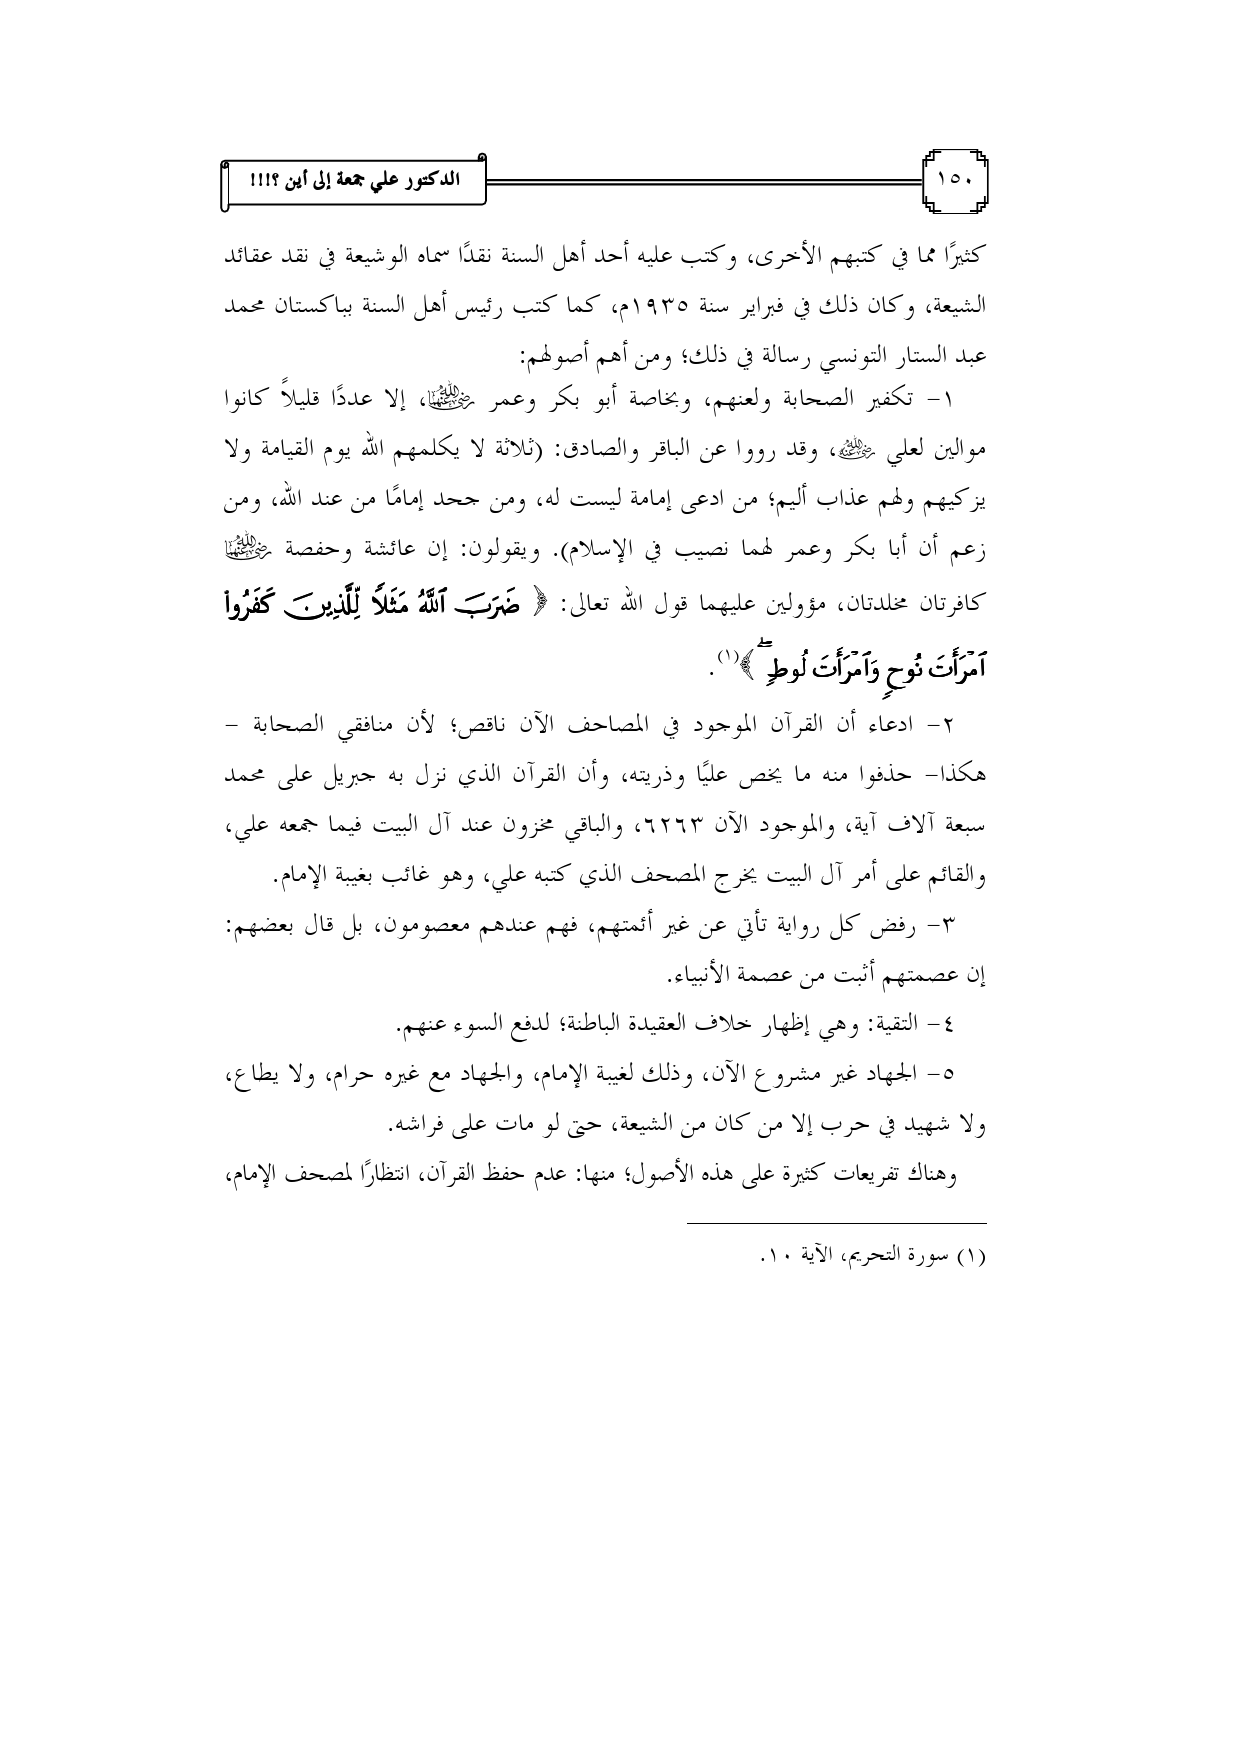 ١٥٠
الدكتور علي جمعة إلى أين ؟!!!
كثيرًا مما في كتبهم الأخرى، وكتب عليه أحد أهل السنة نقدًا سماه الوشيعة في نقد عقائد
الشيعة، وكان ذلك في فبراير سنة ١٩٣٥م، كما كتب رئيس أهل السنة بباكستان محمد
عبد الستار التونسي رسالة في ذلك؛ ومن أهم أصولهم:
١- تكفير الصحابة ولعنهم، وبخاصة أبو بكر وعمر رضي الله عنهما، إلا عددًا قليلاً كانوا
موالين لعلي رضي الله عنه، وقد رووا عن الباقر والصادق: (ثلاثة لا يكلمهم الله يوم القيامة ولا
يزكيهم ولهم عذاب أليم؛ من ادعى إمامة ليست له، ومن جحد إمامًا من عند الله، ومن
زعم أن أبا بكر وعمر لهما نصيب في الإسلام). ويقولون: إن عائشة وحفصة رضي الله عنهما
كافرتان مخلدتان، مؤولين عليهما قول الله تعالى: ﴿ ضَرَبَ ٱللَّهُ مَثَلًا لِّلَّذِينَ كَفَرُوا۟
ٱمْرَأَتَ نُوحٍ وَٱمْرَأَتَ لُوطٍ ۖ ﴾(١).
٢- ادعاء أن القرآن الموجود في المصاحف الآن ناقص؛ لأن منافقي الصحابة -
هكذا- حذفوا منه ما يخص عليًا وذريته، وأن القرآن الذي نزل به جبريل على محمد
سبعة آلاف آية، والموجود الآن ٦٢٦٣، والباقي مخزون عند آل البيت فيما جمعه علي،
والقائم على أمر آل البيت يخرج المصحف الذي كتبه علي، وهو غائب بغيبة الإمام.
٣- رفض كل رواية تأتي عن غير أئمتهم، فهم عندهم معصومون، بل قال بعضهم:
إن عصمتهم أثبت من عصمة الأنبياء.
٤- التقية: وهي إظهار خلاف العقيدة الباطنة؛ لدفع السوء عنهم.
٥- الجهاد غير مشروع الآن، وذلك لغيبة الإمام، والجهاد مع غيره حرام، ولا يطاع،
ولا شهيد في حرب إلا من كان من الشيعة، حتى لو مات على فراشه.
وهناك تفريعات كثيرة على هذه الأصول؛ منها: عدم حفظ القرآن، انتظارًا لمصحف الإمام،
(١) سورة التحريم، الآية ١٠.